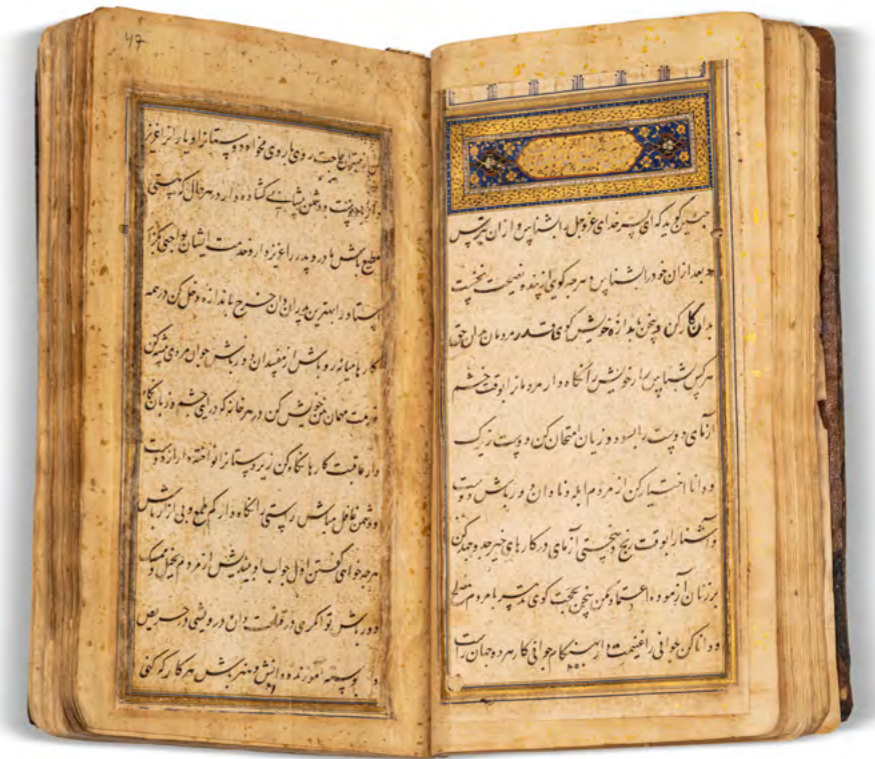 چنین گوید که ای پسر خدای عز و جل را بشناس و از ان بترس
و بعد از ان خود را بشناس و هرچه کوی از پند و نصیحت نخست
بدان کار کن و سخن باندازه خویش کوی قدر مردمان بدان حق
هرکس شناس راز خویش را نکاه دار مردمانرا بوقت خشم
ازمای دوست را بسود و زیان امتحان کن دوست زیرک
و دانا اختیار کن از مردم ابله و نادان دور باش دوست
و آشنا را بوقت رنج و سختی آزمای در کارهای خیر جد و جهد کن
بر زنان آزموده اعتماد مکن سخن بحجت کوی تدبیر با مردم مصلح
و دانا کن جوانی را غنیمت دان بهنکام جوانی کار هر دو جهان راست
47
حاجت روی از وی مخواه دوستانرا و یارانرا عزیز
دوست و دشمن پیشانی کشاده دار در هر حال که هستی
مطیع باش مادر و پدر را عزیز دار و خدمت ایشان بواجبی بکزار
استاد را بهترین پدر دان خرج باندازه دخل کن در همه
کارها میانه رو باش از مفسدان دور باش جوانمردی پیشه کن
خدمت مهمان خویش کن در هر خانه که درایی چشم و زبان نکاه
دار عاقبت کارها نکاه کن زیردستانرا نواخته دار از دوست
و دشمن غافل مباش راستی را نکاه دار کم طمع و بی ازار باش
هرچه خواهی کفتن اول جواب او بیندیش از مردم بخیل و ممسک
دور باش توانکری در قناعت دان درویشی در حریص
و پیوسته آموزنده دانش و هنر باش هر کار که کنی